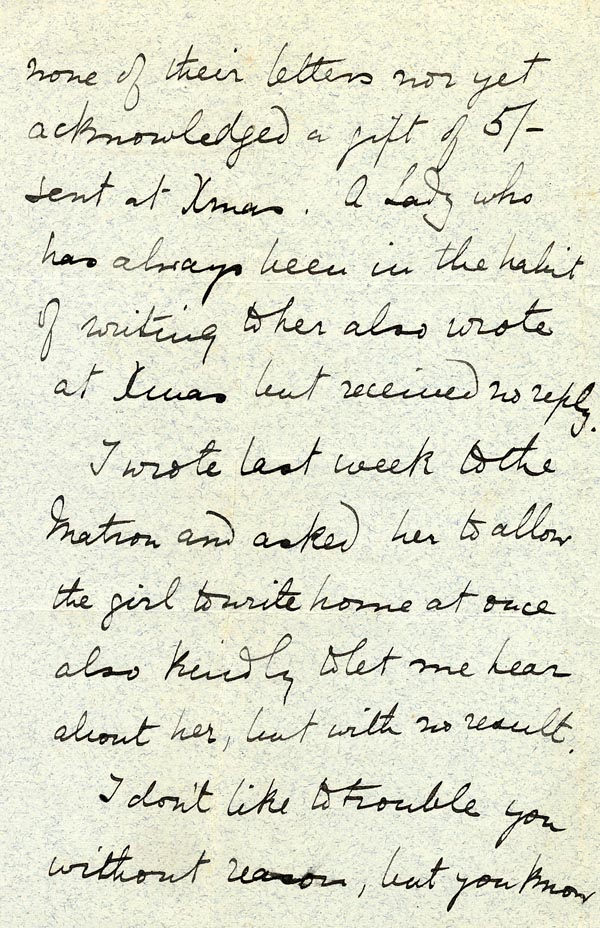 none of their letters nor yet
acknowledged a gift of 5/-
sent at Xmas. A Lady who
has always been in the habit
of writing to her also wrote
at Xmas but received no reply.
I wrote last week to the
Matron and asked her to allow
the girl to write home at once
also kindly to let me hear
about her, but with no result.
I don't like to trouble you
without reason, but you know